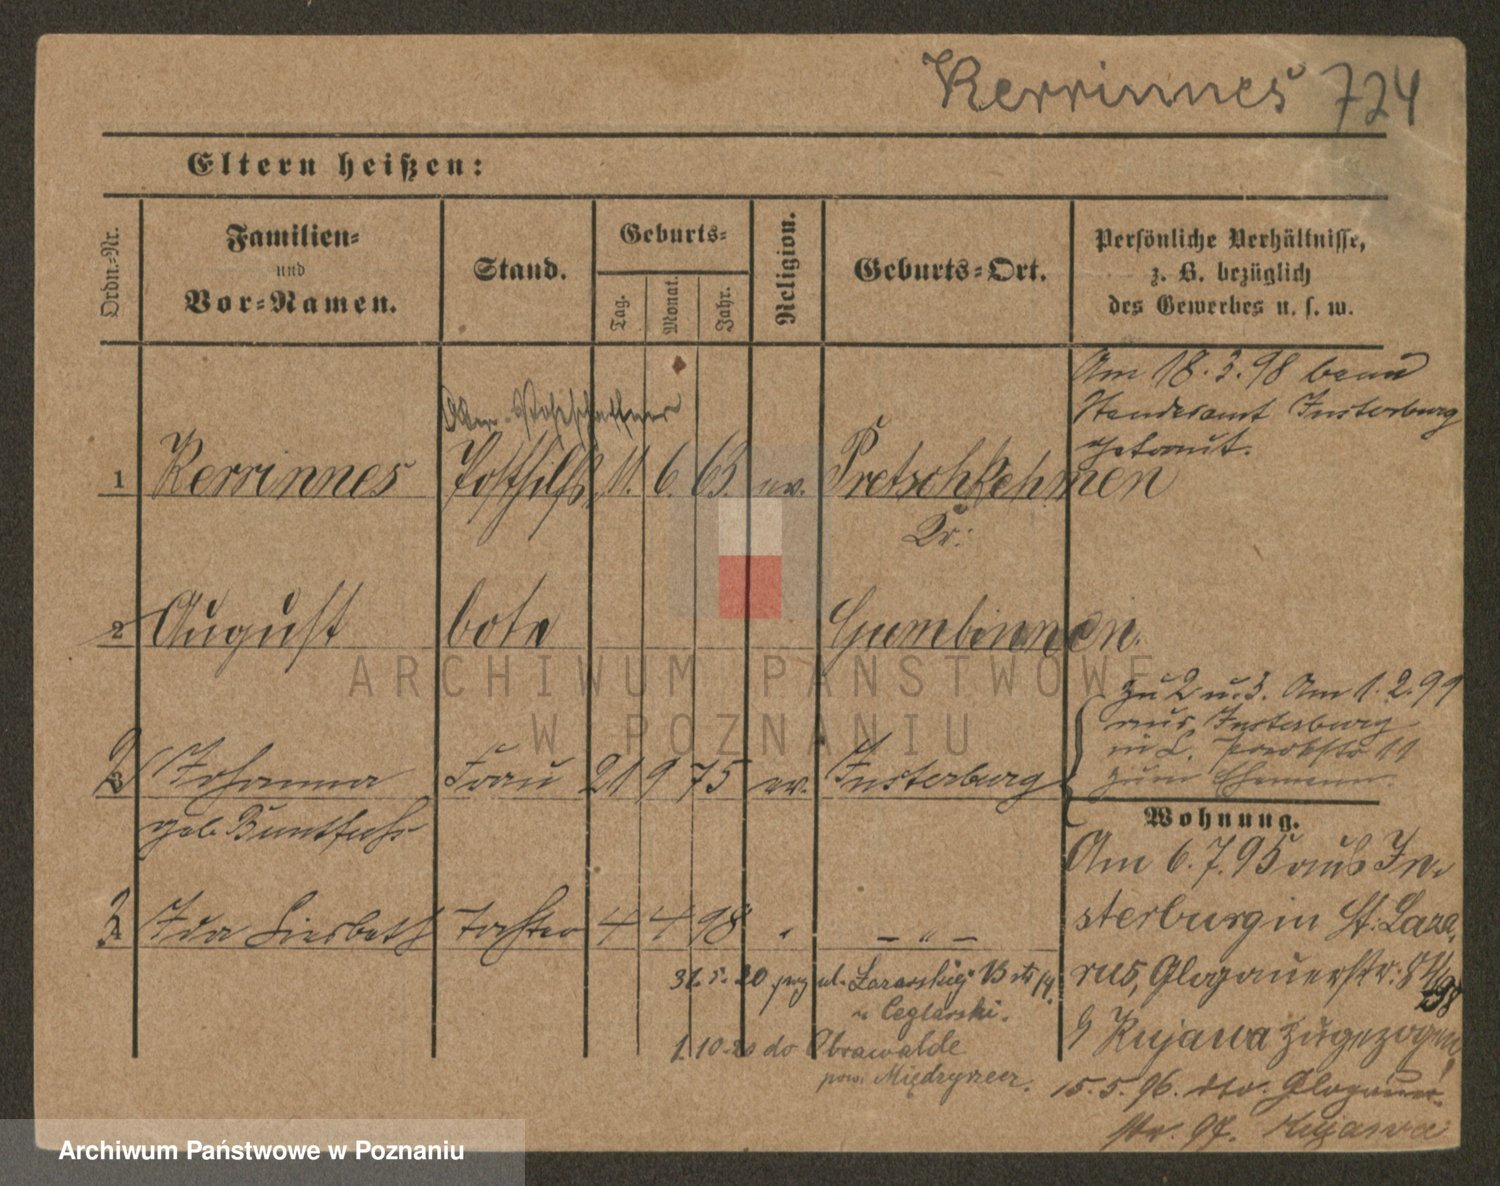 Kerrinnes 724
Eltern heißen:
Ordn.=Nr.
Familien=
und
Vor=Namen.
Stand.
Geburts=
Tag.
Monat.
Jahr.
Religion.
Geburts=Ort.
Persönliche Verhältnisse,
z. B. bezüglich
des Gewerbes u. s. w.
Am 18.3.98 beim
Standesamt Insterburg
getraut.
Ober-Postschaffner
1 Kerrinnes Posthilfs 11. 6. 63. ev. Pretschkehmen
Kr:
2 August bote Gumbinnen.
zu 2 u. 3. Am 1.2.99
aus Insterburg
in L. 11
zum Ehemann.
2 3 Johanna Frau 21 9 75 ev. Insterburg
geb. Buntfuß
3 Ida Liesbeth Tochter 4 4 98 " — " —
Wohnung.
Am 6.7.95 aus In-
sterburg in St. Laza-
rus, Glogauerstr:
b/ Kujawa zugezogen!
31.5.20 ul. Łazarskiej 13
u Ceglarski.
1.10.20 do Obrawalde
pow. Międzyrzecz.
15.5.96. dto. Glogauer-
str. 97. Kujawa
ARCHIWUM PAŃSTWOWE
W POZNANIU
Archiwum Państwowe w Poznaniu